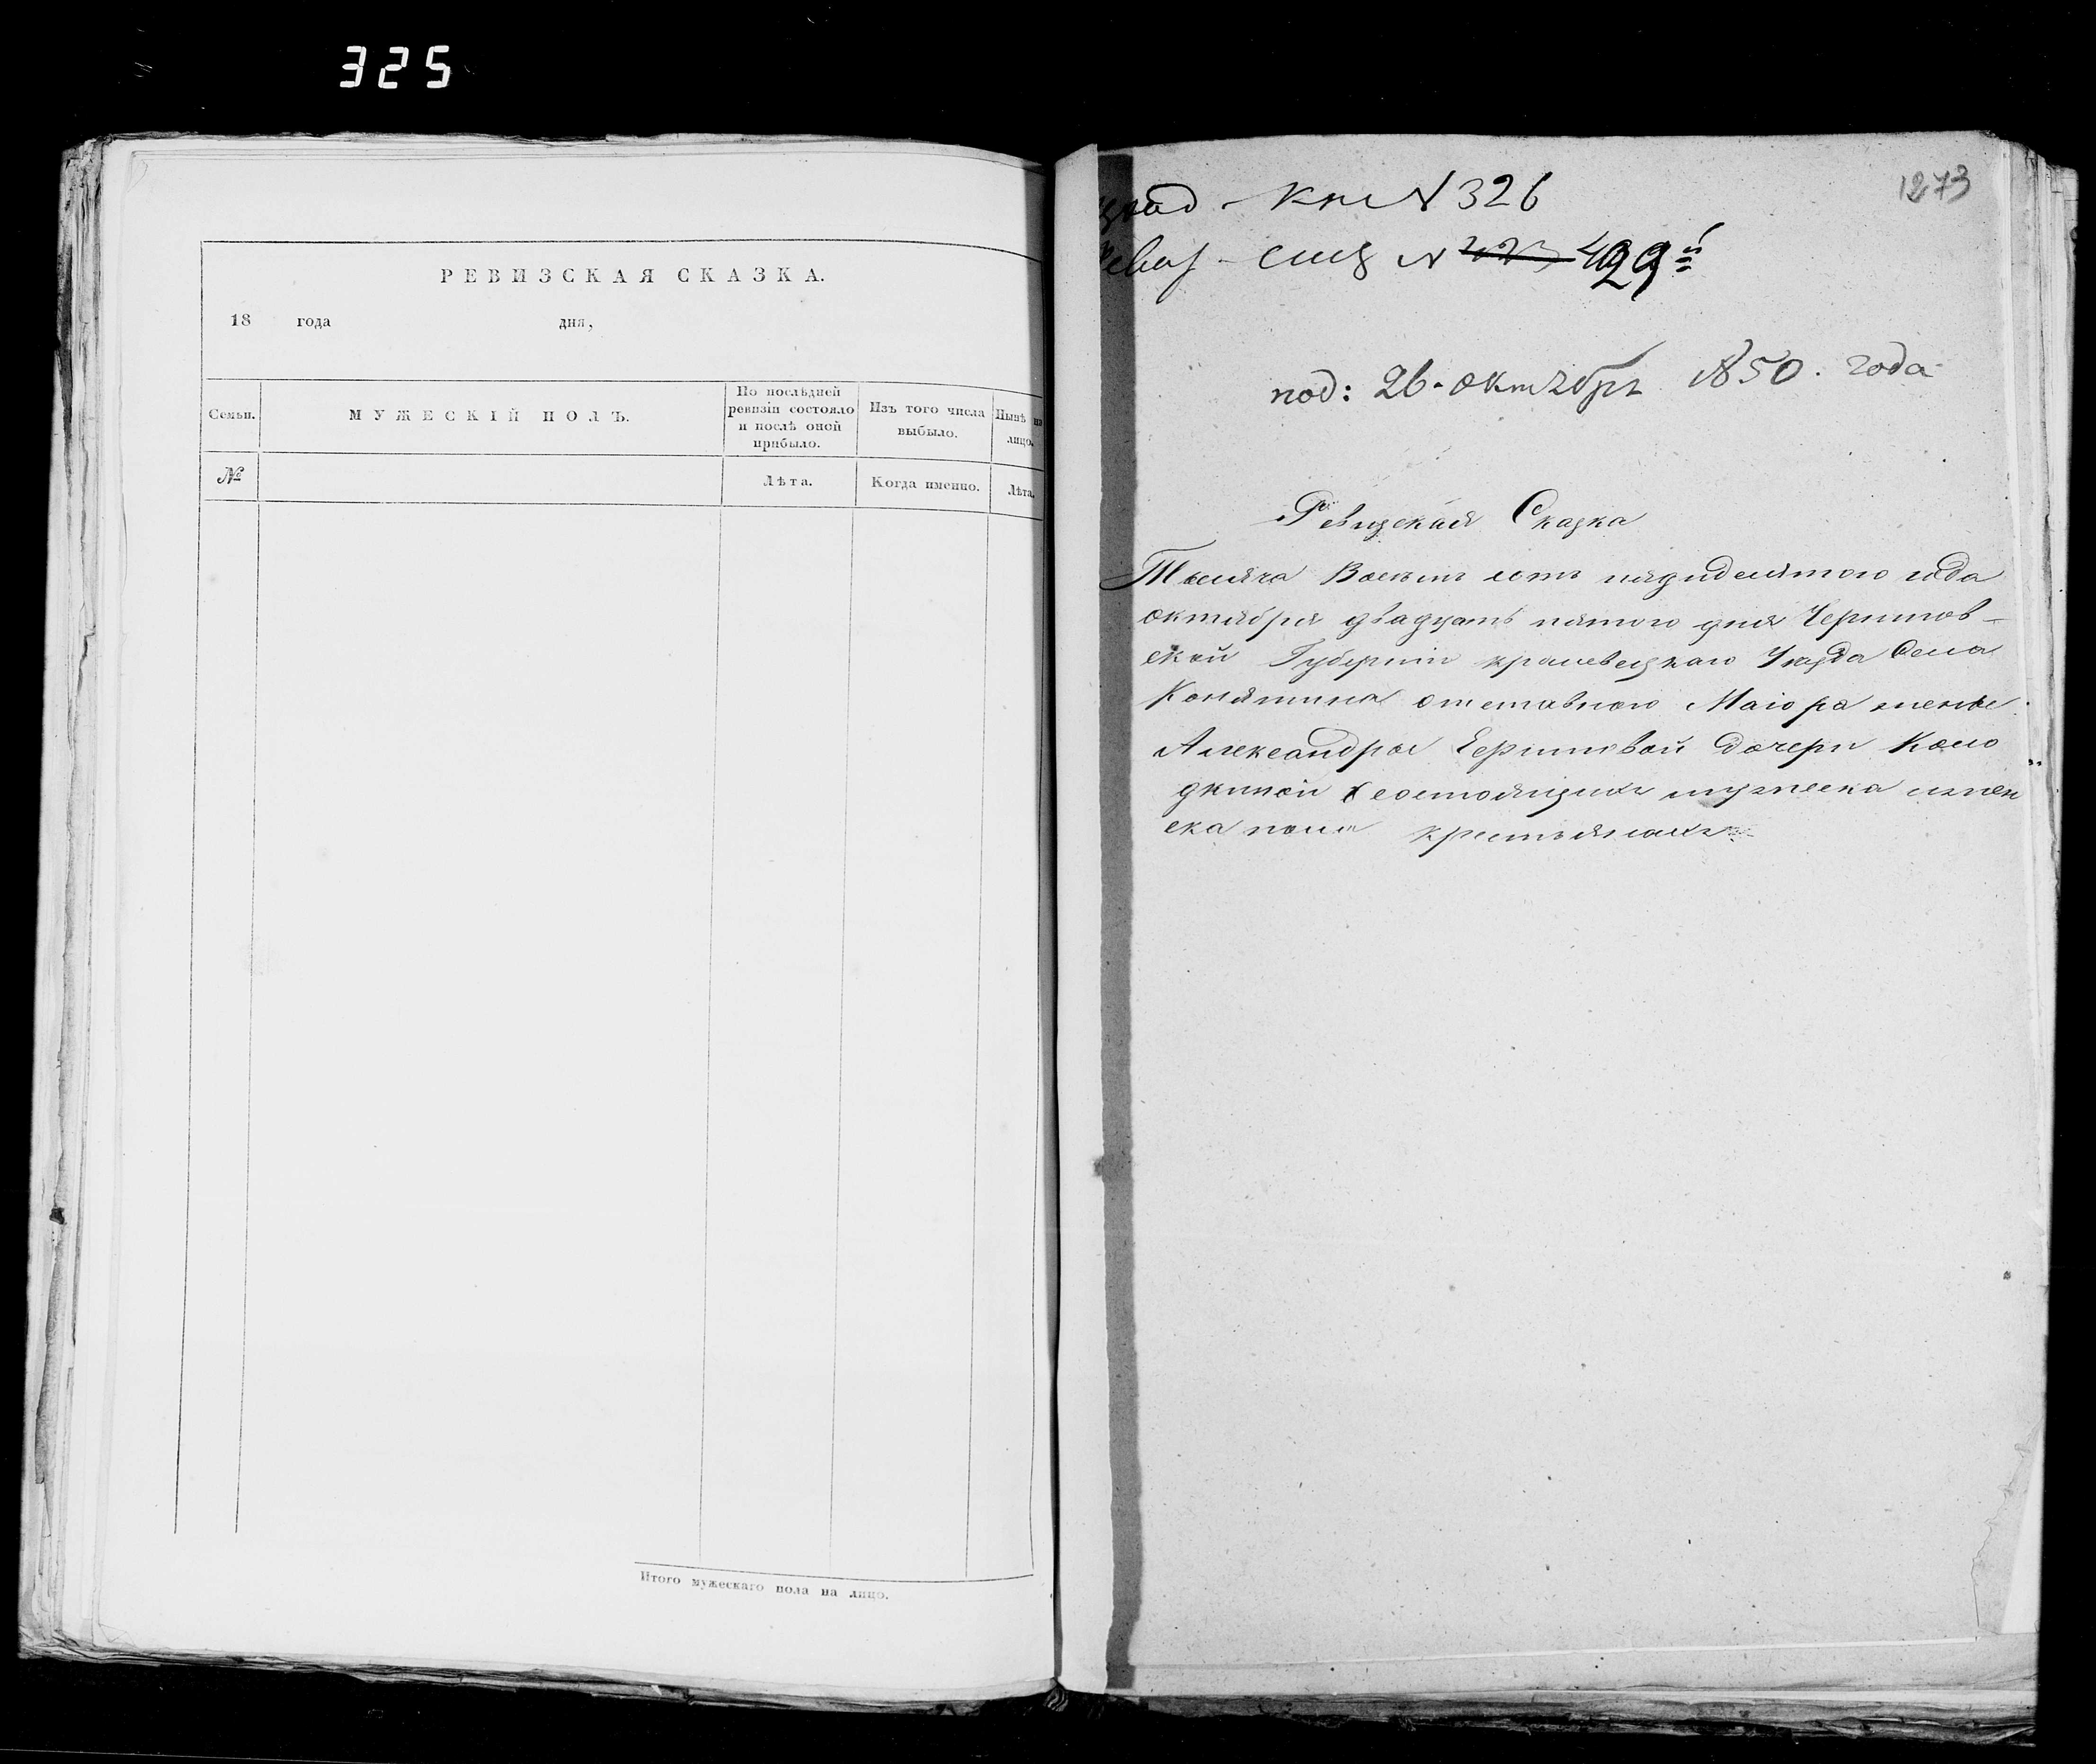 325
РЕВИЗСКАЯ СКАЗКА.
18 года дня,
Семьи.
МУЖЕСКІЙ ПОЛЪ.
По послѣдней ревизіи состояло и послѣ оной прибыло.
Изъ того числа выбыло.
Нынѣ на лицо.
№
Лѣта.
Когда именно.
Лѣта.
Итого мужескаго пола на лицо.
1273
кн N 326
N 499й
под: 26. октября 1850. года
Ревизская Сказка
Тысяча Восемъ сотъ пядидесятого года
октября двадцать пятого дня Чернигов-
ской Губерніи кролевецкаго Уезда Села
Конятина отставного Маіора жены
Александры дочери Коло
дкиной состоящихъ мужеска и жен
ска пола крестьянахъ